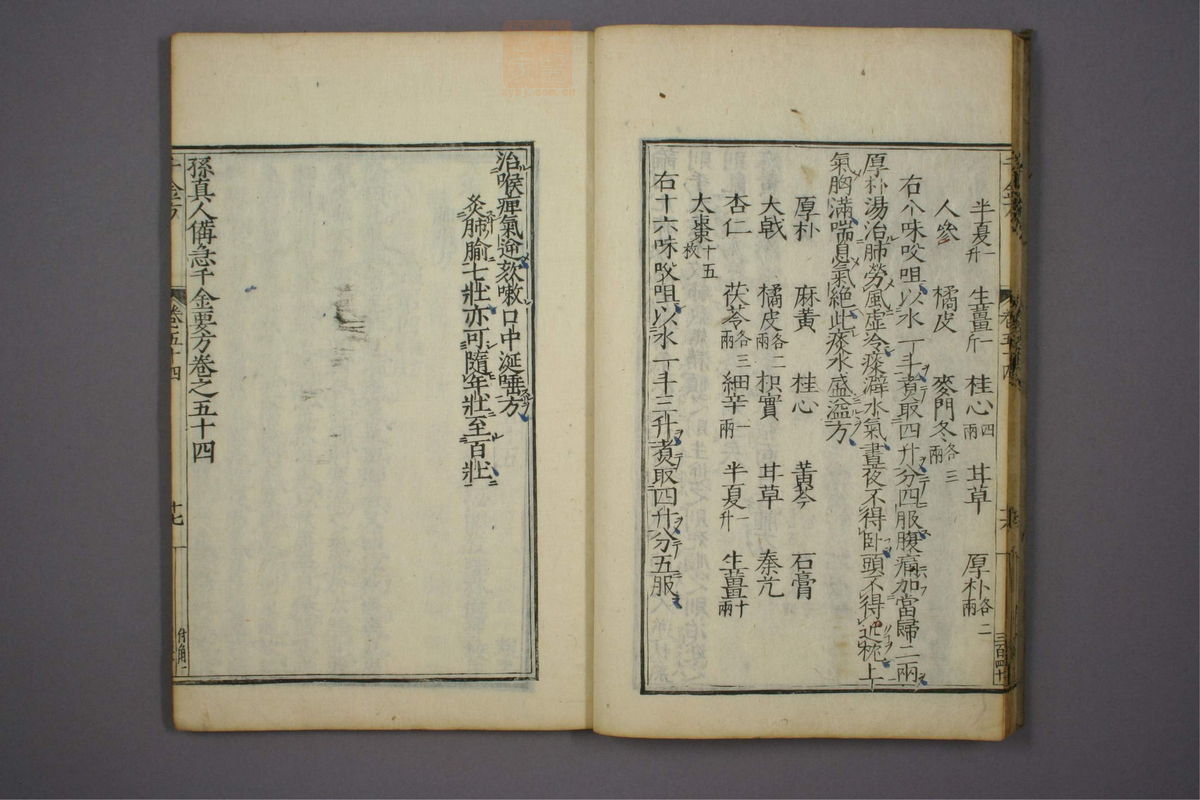 半夏一升 生薑一斤 桂心四兩 甘草 厚朴各二兩
人參 橘皮 麥門冬各三兩
右八味㕮咀以水一斗煑取四升分四服腹痛加當歸二兩
厚朴湯治肺勞風虛冷痰澼水氣晝夜不得卧頭不得近枕上
氣胸滿喘息氣絕此痰水盛溢方
厚朴 麻黃 桂心 黃芩 石膏
大戟 橘皮各二兩 枳實 甘草 秦艽
杏仁 茯苓各三兩 細辛一兩 半夏一升 生薑十兩
大棗十五枚
右十六味㕮咀以水一斗三升煑取四升分五服
治喉痺氣逆欬嗽口中涎唾方
灸肺腧七壯亦可隨年壯至百壯
孫真人備急千金要方卷之五十四
千金方 卷之五十四 十七